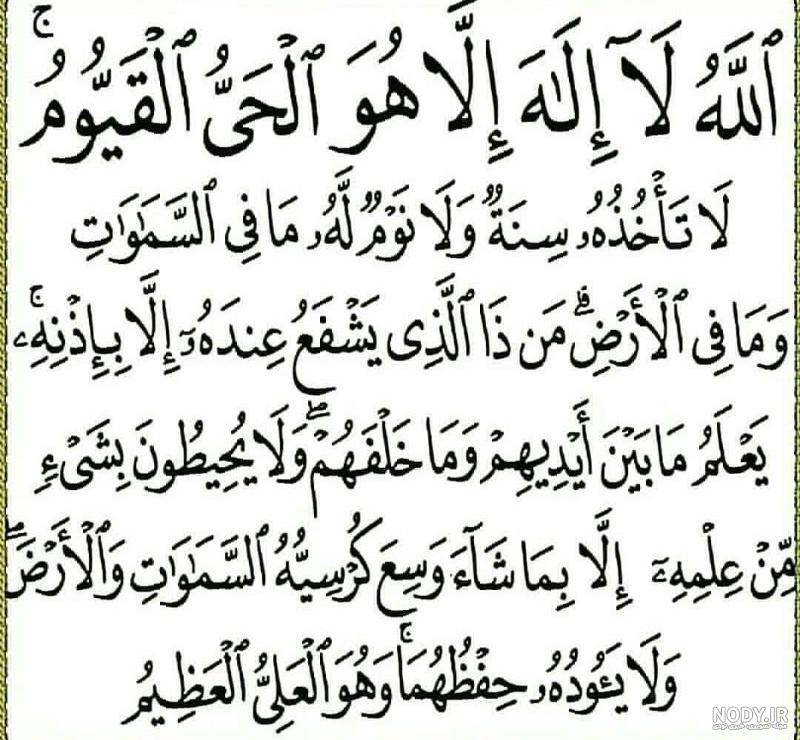 ٱللَّهُ لَآ إِلَٰهَ إِلَّا هُوَ ٱلْحَىُّ ٱلْقَيُّومُ ۚ
لَا تَأْخُذُهُۥ سِنَةٌ وَلَا نَوْمٌ لَّهُۥ مَا فِى ٱلسَّمَٰوَٰتِ
وَمَا فِى ٱلْأَرْضِ ۗ مَن ذَا ٱلَّذِى يَشْفَعُ عِندَهُۥٓ إِلَّا بِإِذْنِهِۦ ۚ
يَعْلَمُ مَا بَيْنَ أَيْدِيهِمْ وَمَا خَلْفَهُمْ ۖ وَلَا يُحِيطُونَ بِشَىْءٍ
مِّنْ عِلْمِهِۦٓ إِلَّا بِمَا شَآءَ وَسِعَ كُرْسِيُّهُ ٱلسَّمَٰوَٰتِ وَٱلْأَرْضَ ۖ
وَلَا يَـُٔودُهُۥ حِفْظُهُمَا ۚ وَهُوَ ٱلْعَلِىُّ ٱلْعَظِيمُ
NODY.IR